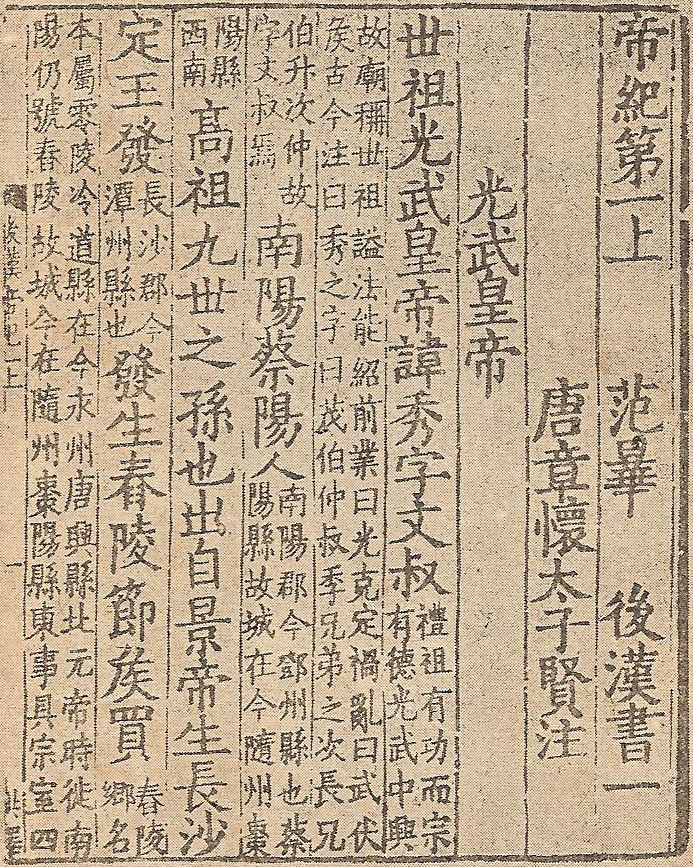 帝紀第一上 范曄 後漢書一
唐章懷太子賢注
光武皇帝
世祖光武皇帝諱秀字文叔
禮祖有功而宗
有德光武中興
故廟稱世祖謚法能紹前業曰光克定禍亂曰武伏
侯古今注曰秀之字曰茂伯仲叔季兄弟之次長兄
伯升次仲故
字文叔焉
南陽蔡陽人
南陽郡今鄧州縣也蔡
陽縣故城在今隨州棗
陽縣
西南
髙祖九世之孫也出自景帝生長沙
定王發
長沙郡今
潭州縣也
發生舂陵節侯買
舂陵
鄉名
本屬零陵冷道縣在今永州唐興縣北元帝時徙南
陽仍號舂陵故城今在隨州棗陽縣東事具宗室四
後漢書紀一上
一